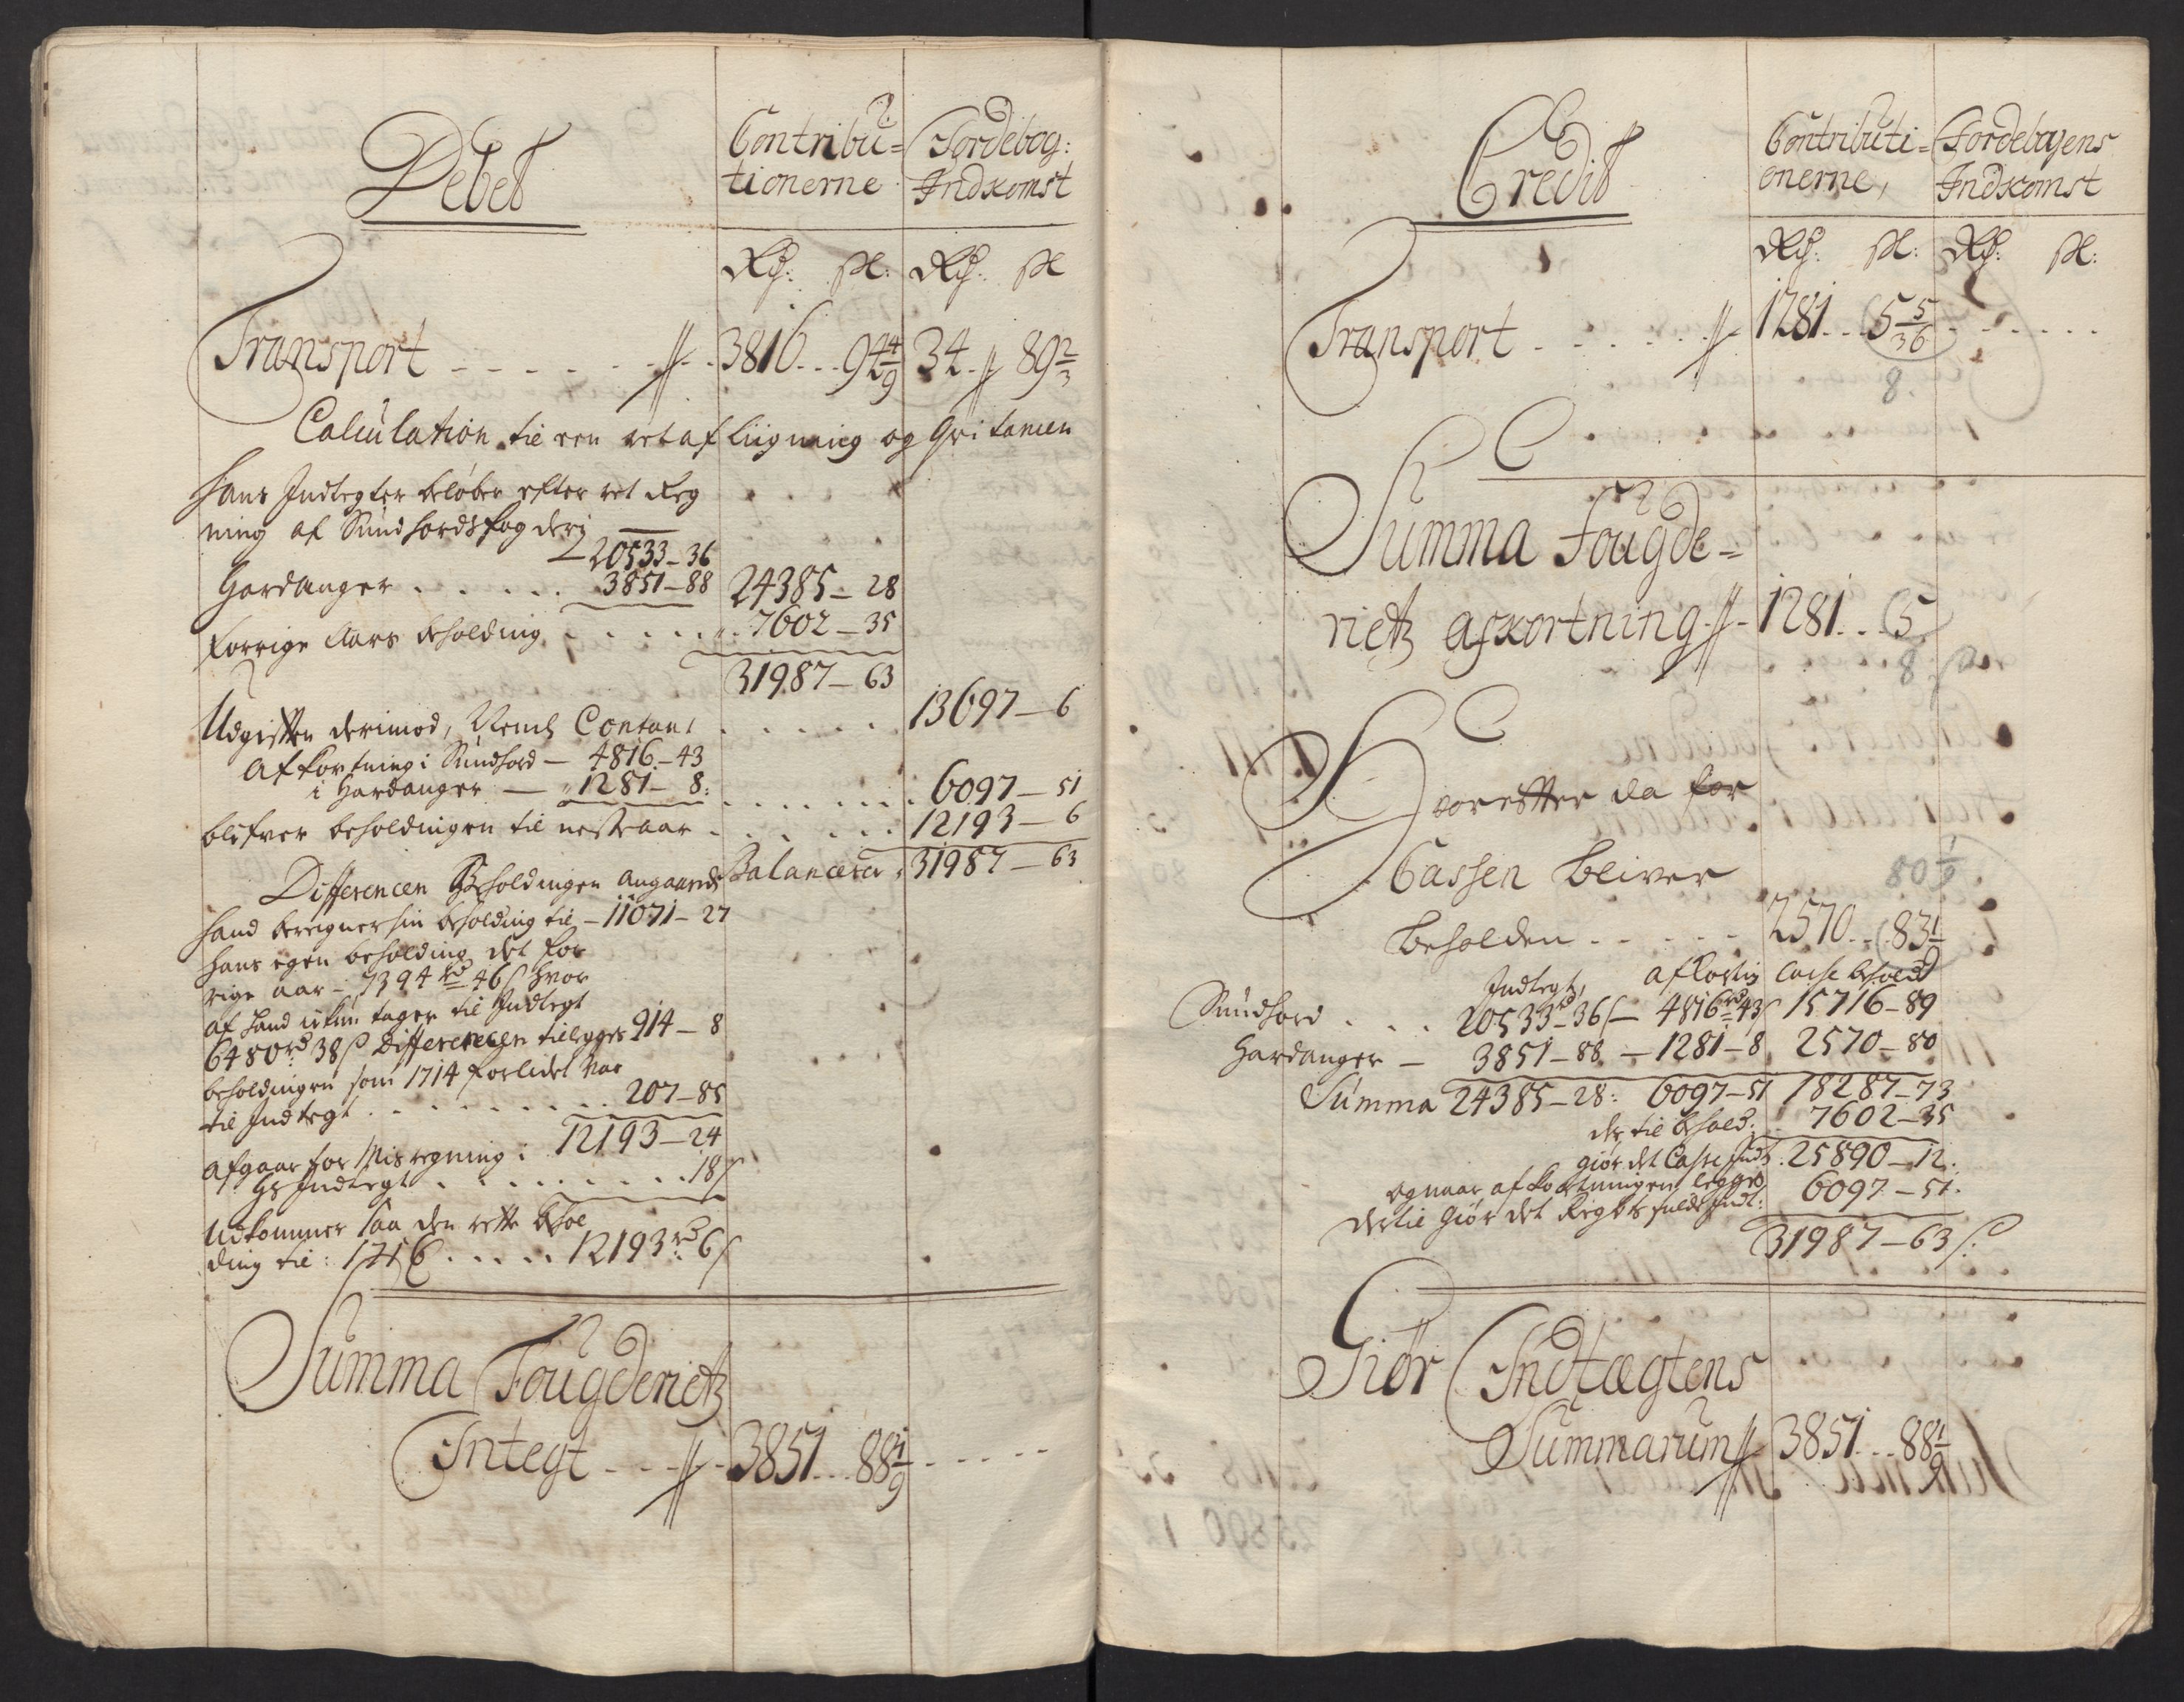 Debet
Contribu=
tionerne
Jordebog:
Indkomst
Rd: sk: Rd: sk
Transport - - - - - - 3816...94 4/9 34. 89 2/3
Calculation til een ret afliigning og Qvitancen
hans Indtegter beløber efter ret Reg
ning af Sundhordsfogderj
20533-36
Hardanger . . . . . 3851-88 24385-28
forrige Aars beholding . . . . . 7602-35
31987-63
Udgiften derimod, Neml Contant . . . . . 13697-6
Afkortning i Sundhord - 4816-43
i Hardanger - 1281-8: . . . . . . . 6097-51
blifver beholdingen til neste aar . . . . . . 12193-6
Balancerer, 31987-63
Differencen Beholdingen angaaende
hand beregner sin beholding til - 11071-27
hans egen beholding det for
rige aar - 7394 rd 46 s hvor
af hand ickun tager til Indtegt
6480 rd 38 s Differencen tillegges 914-8
beholdingen som 1714 for lidet var
til Indtegt . . . . . . . . . 207-85
12193-24
afgaar for Misregning i
Indtegt . . . . . . . . . 18 s
Udkommer saa den rette behol
ding til: 1716 . . . . . 12193 rd 6 s
Summa Fougderietz
Integt - - - - 3851...88 1/9 - - - - -
Credit
Contributi=
onerne,
Jordebogens
Indkomst
Rd: sk: Rd: sk:
Transport - - - - - - 1281...5 5/36 - - - - - -
8.
Summa Fougde=
rietz afkortning - 1281...5
8
Hvorefter da for
Cassen bliver
80 1/9
beholden - - - - - 2570...83 1/
Indtegt, afkortn Casse behold
Sundhord . . . 20533 rd-36 s - 4816 rd 43 s 15716-89
Hardanger - 3851-88 - 1281-8 2570-80
Summa 24385-28: 6097-51 18287-73
der til behold: 7602-35
giør det Casse Indt. 25890-12.
og naar afkortningen legges 6097-51.
dertil Giør det Regnsk fulde Indt:
31987-63 s
Giør Indtægtens
Summarum 3851...88 1/9